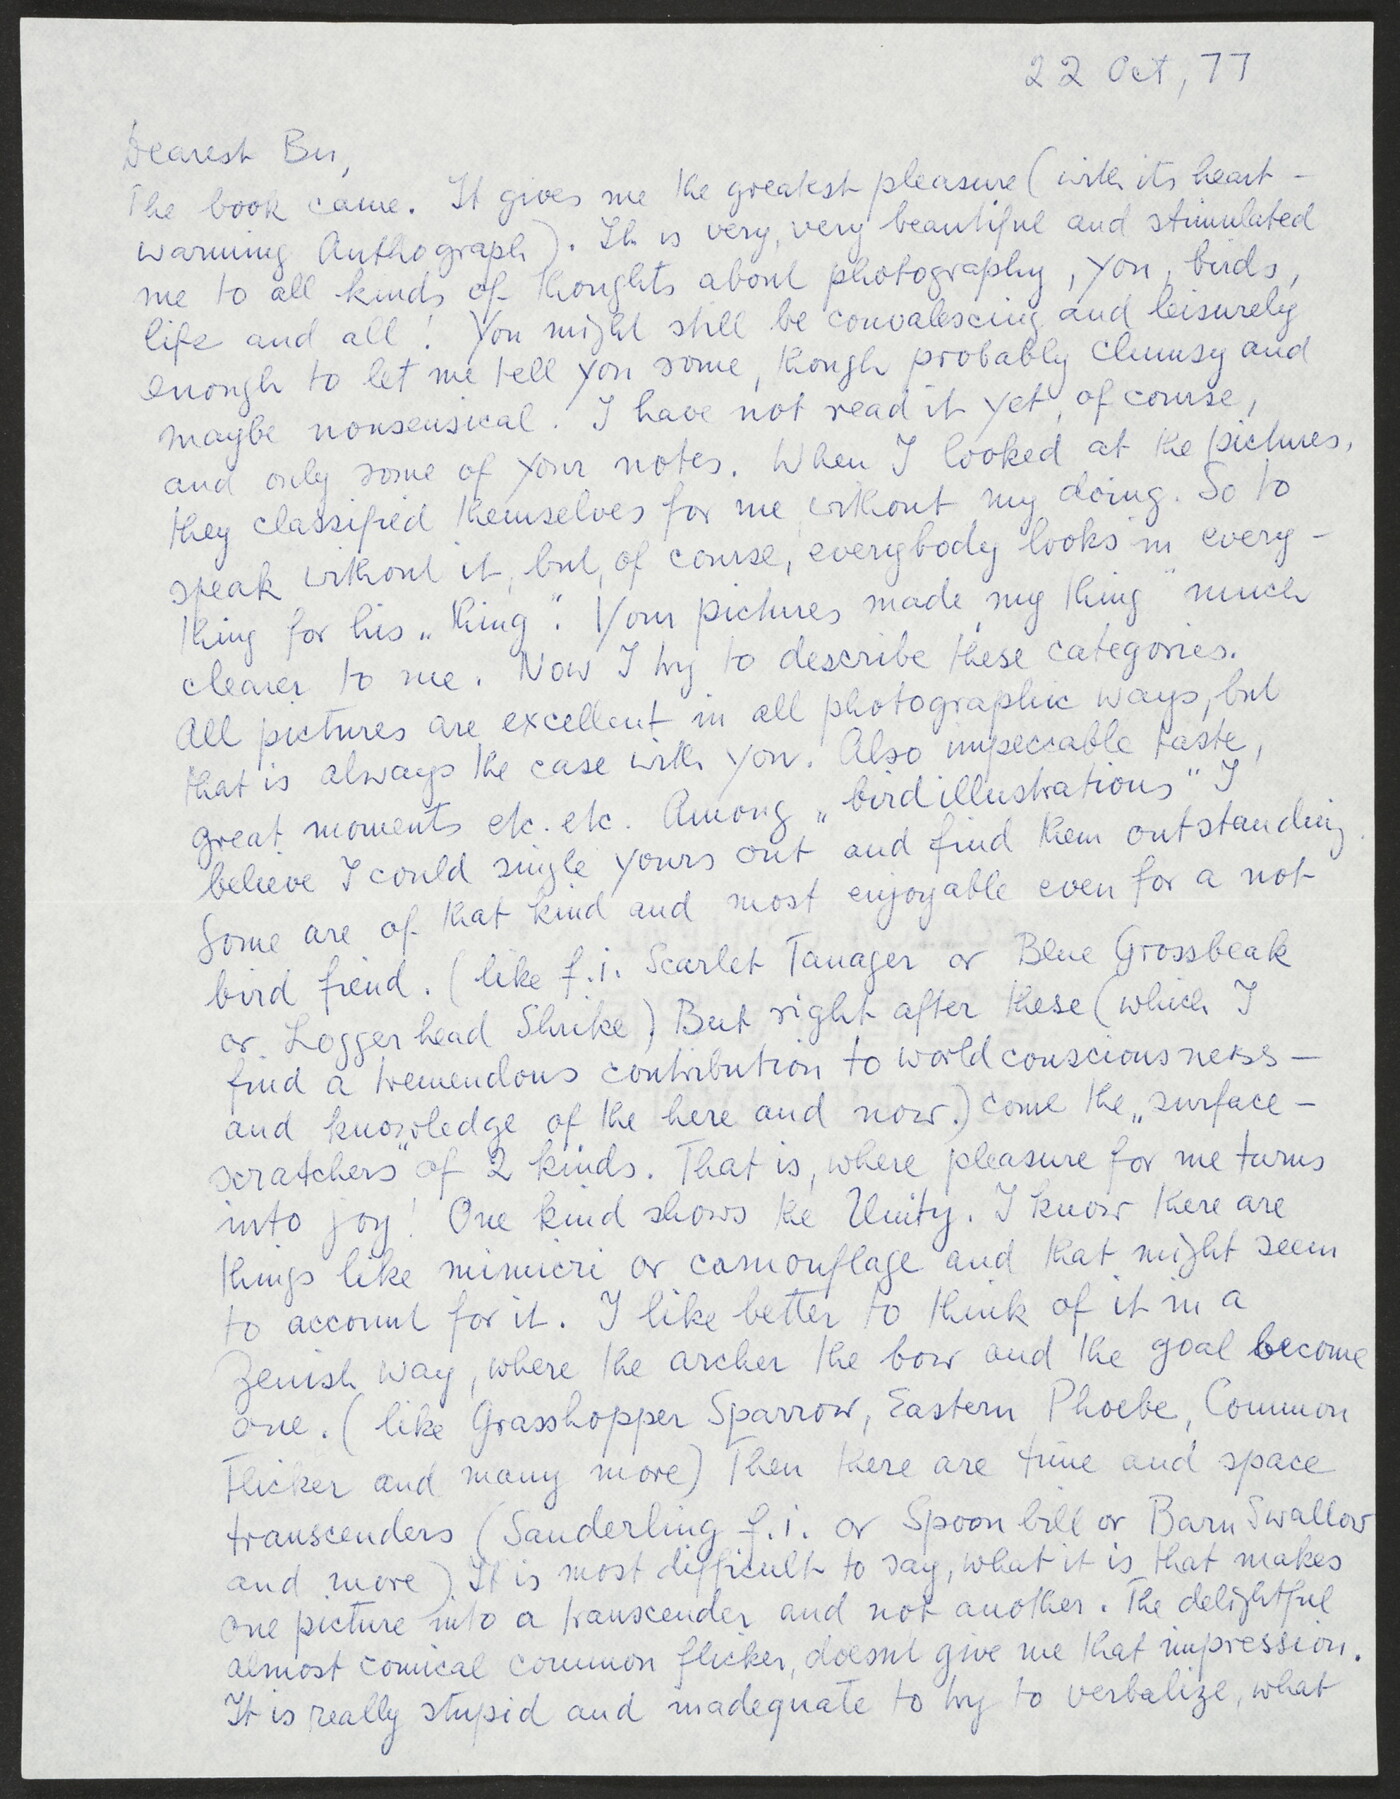 22 Oct, 77
Dearest Bu,
The book came. It gives me the greatest pleasure (with its heart-
warming Anthograph). It is very, very beautiful and stimulated
me to all kinds of thoughts about photography, you, birds,
life and all! You might still be convalescing and leisurely
enough to let me tell you some, though probably clumsy and
maybe nonsensical. I have not read it yet, of course,
and only some of your notes. When I looked at the pictures,
they classified themselves for me without my doing. So to
speak without it, but, of course, everybody looks in every-
thing for his „thing". Your pictures made „my thing" much
clearer to me. Now I try to describe these categories.
All pictures are excellent in all photographic ways, but
that is always the case with you. Also impeccable taste,
great moments etc. etc. Among „birdillustrations" I
believe I could single yours out and find them outstanding.
Some are of that kind and most enjoyable even for a not
bird fiend. (like f.i. Scarlet Tanager or Blue Grossbeak
or Loggerhead Shrike) But right after these (which I
find a tremendous contribution to world consciousness -
and knowledge of the here and now.) come the „surface-
scratchers" of 2 kinds. That is, where pleasure for me turns
into joy! One kind shows the Unity. I know there are
things like mimicri or camouflage and that might seem
to account for it. I like better to think of it in a
Zenish way, where the archer the bow and the goal become
one. (like Grasshopper Sparrow, Eastern Phoebe, Common
Flicker and many more) Then there are time and space
transcenders (Sanderling f.i. or Spoonbill or Barn Swallow
and more) It is most difficult to say, what it is that makes
one picture into a transcender and not another. The delightful
almost comical common flicker, doesnt give me that impression.
It is really stupid and inadequate to try to verbalize, what